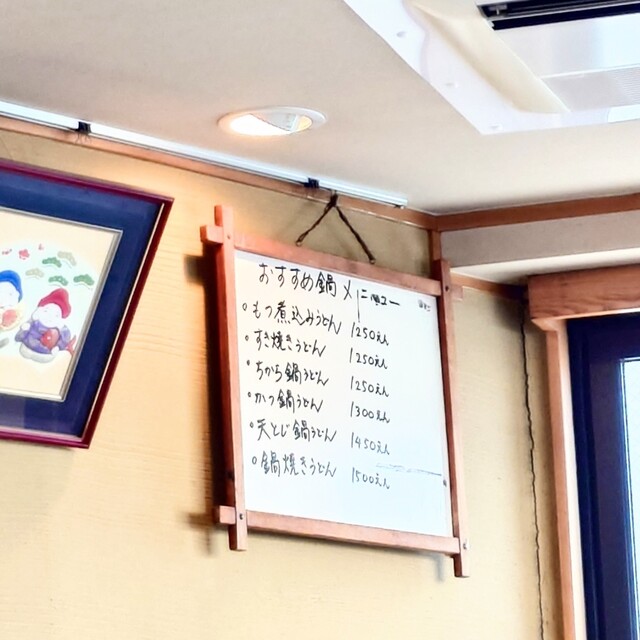 おすすめ鍋メニュー
・もつ煮込みうどん 1250えん
・すき焼きうどん 1250えん
・ちから鍋うどん 1250えん
・かつ鍋うどん 1300えん
・天とじ鍋うどん 1450えん
・鍋焼きうどん 1500えん